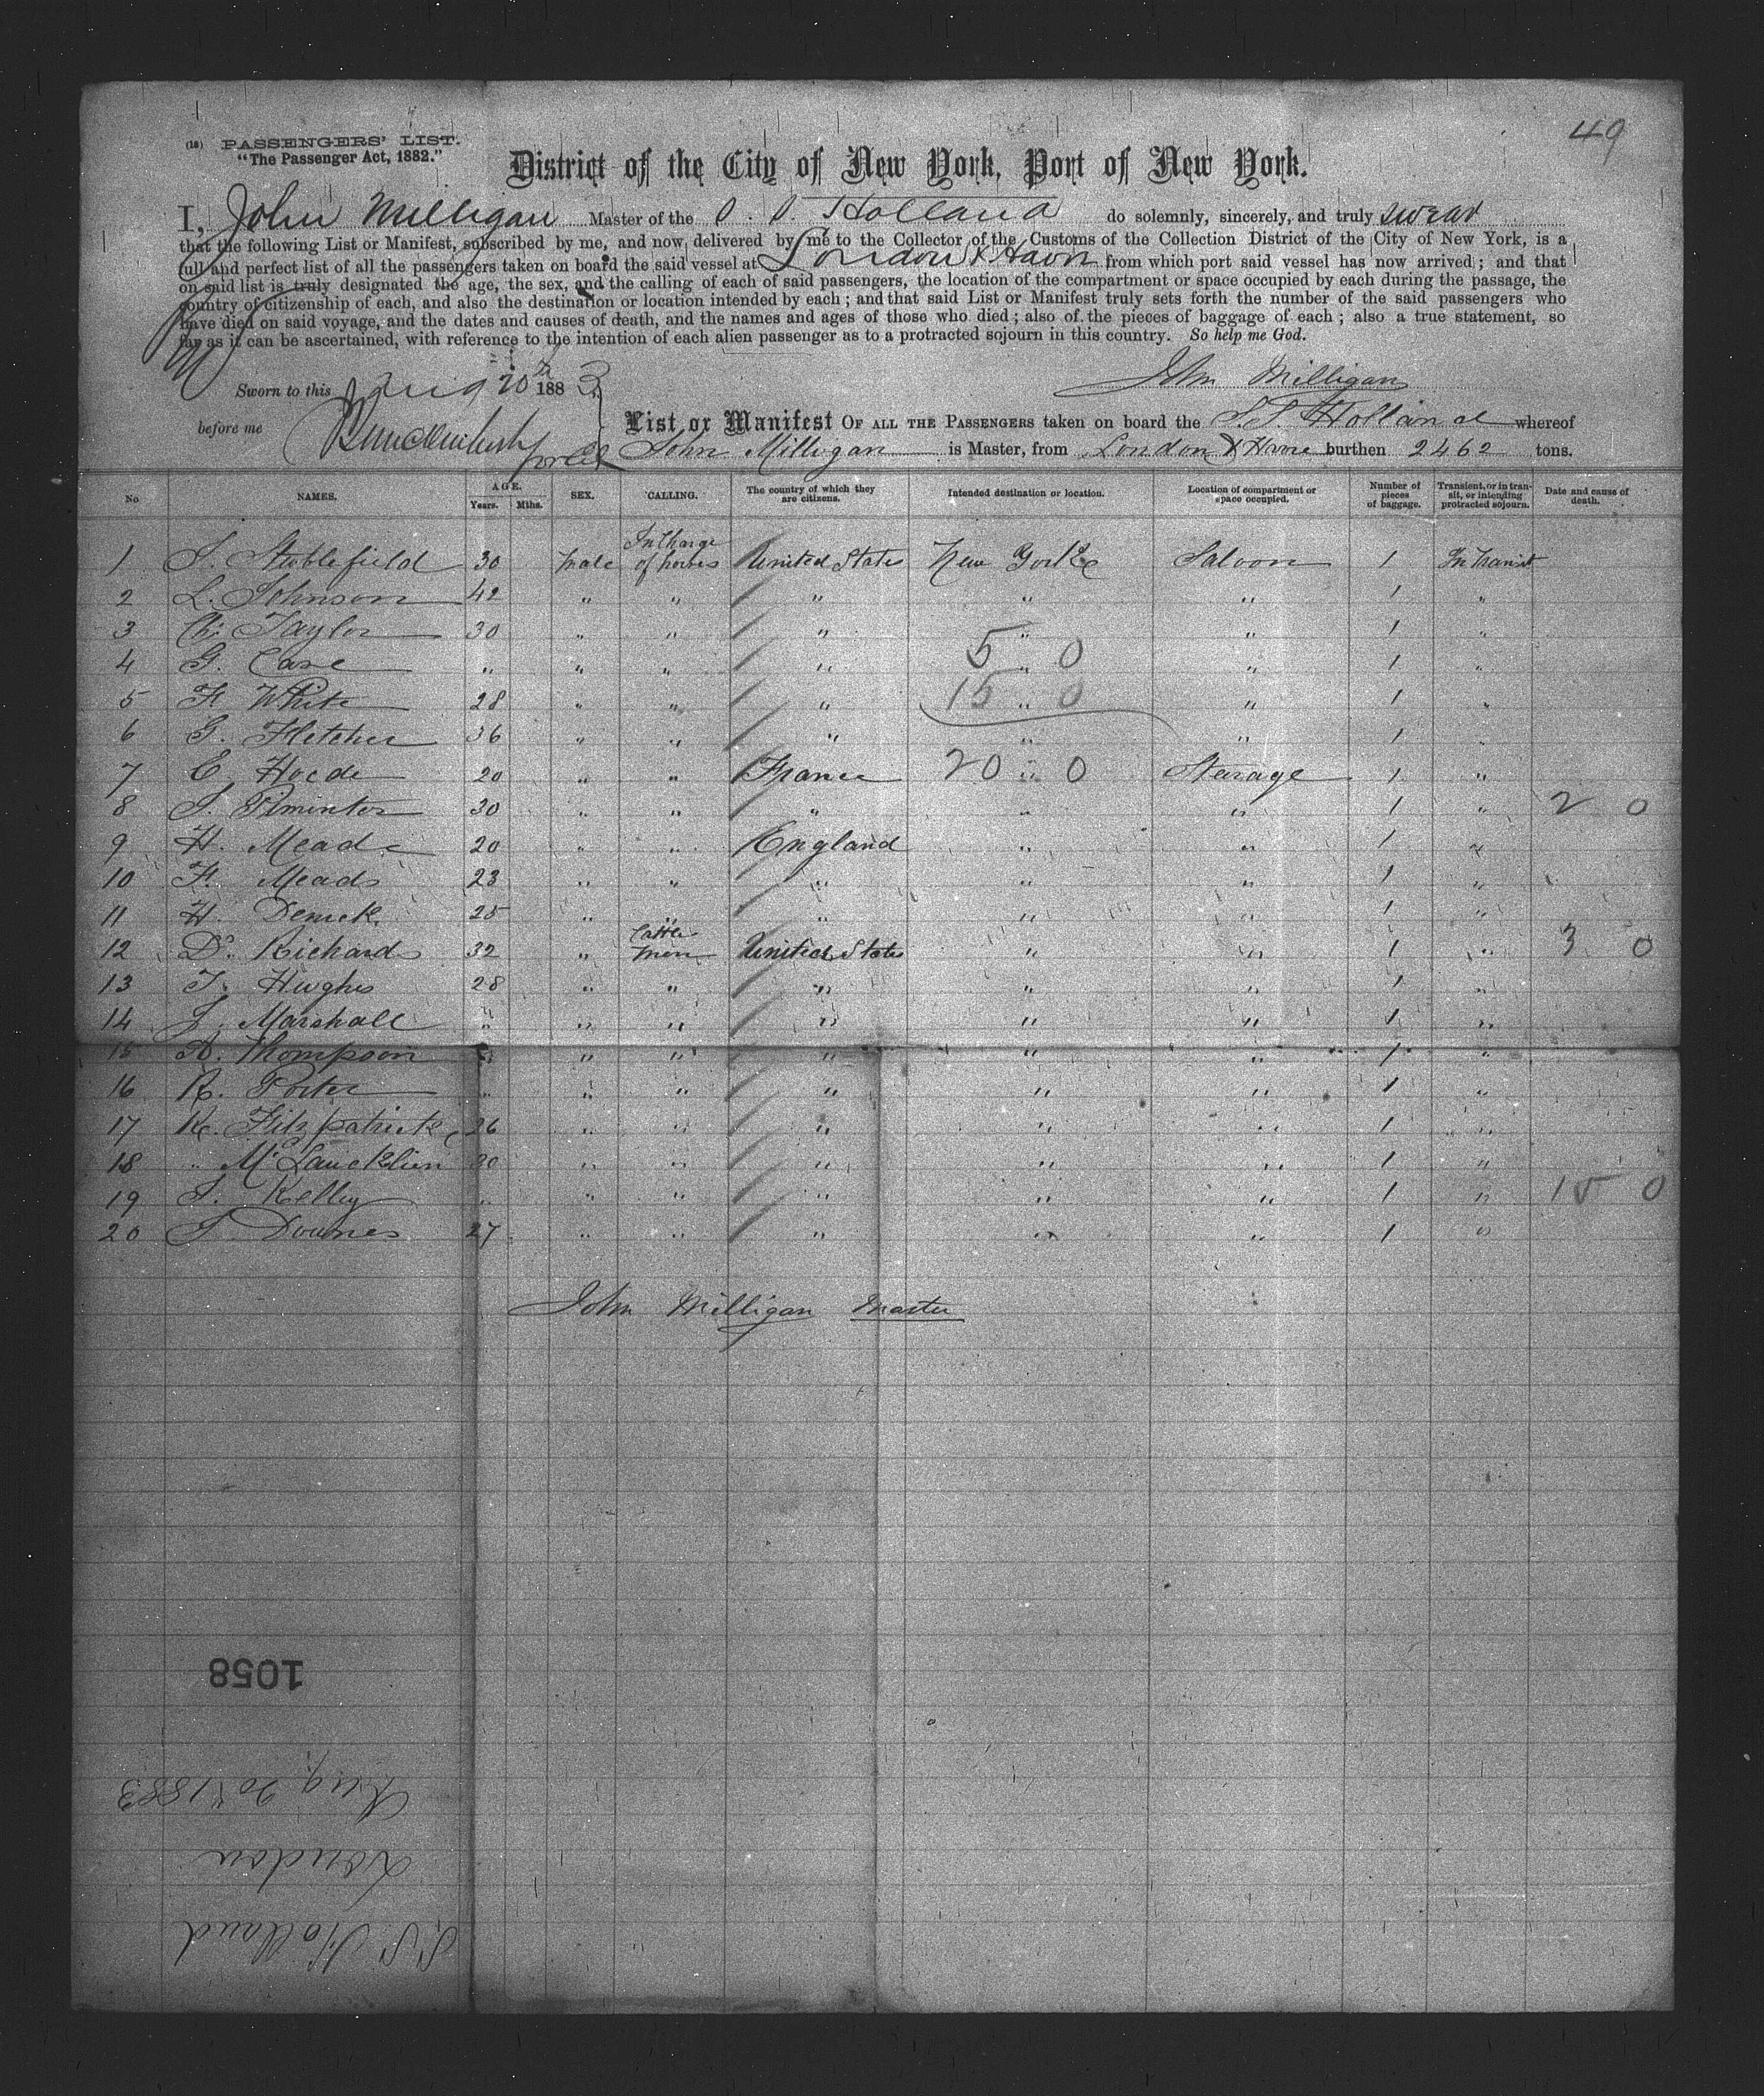 49
(18) PASSENGERS' LIST.
"The Passenger Act, 1882."
District of the City of New York, Port of New York.
I, John Milligan Master of the S. S. Holland do solemnly, sincerely, and truly swear
that the following List or Manifest, subscribed by me, and now delivered by me to the Collector of the Customs of the Collection District of the City of New York, is a
full and perfect list of all the passengers taken on board the said vessel at London & Havre from which port said vessel has now arrived; and that
on said list is truly designated the age, the sex, and the calling of each of said passengers, the location of the compartment or space occupied by each during the passage, the
country of citizenship of each, and also the destination or location intended by each; and that said List or Manifest truly sets forth the number of the said passengers who
have died on said voyage, and the dates and causes of death, and the names and ages of those who died; also of the pieces of baggage of each; also a true statement, so
far as it can be ascertained, with reference to the intention of each alien passenger as to a protracted sojourn in this country. So help me God.
Sworn to this Aug 20th 1883 John Milligan
before me
List or Manifest OF ALL THE PASSENGERS taken on board the S.S. Holland whereof
John Milligan is Master, from London & Havre burthen 2462 tons.
No NAMES. AGE. Years. Mths. SEX. CALLING. The country of which they are citizens. Intended destination or location. Location of compartment or space occupied. Number of pieces of baggage. Transient, or in transit, or intending protracted sojourn. Date and cause of death.
1 S. Stubblefield 30 Male In Charge of horses United States New York Saloon 1 In Transit
2 L. Johnson 42 " " " " " 1 "
3 Ch. Taylor 30 " " " " " 1 "
4 G. Case " " " " " " 1 "
5 F. White 28 " " " " " 1 "
6 G. Fletcher 36 " " " " " 1 "
7 E. Hoede 20 " " France " Sterage 1 "
8 S. 30 " " " " " 1 "
9 H. Meade 20 " " England " " 1 "
10 F. Meads 23 " " " " " 1 "
11 H. 25 " " " " " 1 "
12 D. Richards 32 " Cattle Men United States " " 1 "
13 T. Hughes 28 " " " " " 1 "
14 J. Marshall " " " " " " 1 "
15 A. Thompson " " " " " 1 "
16 R. Porter " " " " " " 1 "
17 K. Fitzpatrick 26 " " " " " 1 "
18 " McLaucklin 30 " " " " " 1 "
19 S. Kelley " " " " " " 1 "
20 S. Downes 27 " " " " " 1 "
5 0
15 0
20 0
2 0
3 0
15 0
John Milligan Master
1058
Aug 20th 1883
London
S.S. Holland